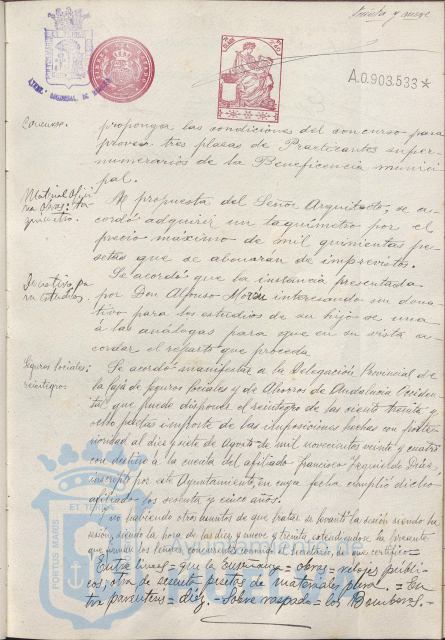 treinta y nueve
A.0.903.533*
Concurso.
proponga las condiciones del concurso para
proveer tres plazas de Practicantes super-
numerarios de la Beneficencia munici-
pal.
A propuesta del Señor Arquitecto, se a-
cordó adquirir un taquímetro por el
precio máximo de mil quinientas pe-
setas que se abonarán de imprevistos.
Se acordó que la instancia presentada
por Don Alfonso interesando un dona-
tivo para los estudios de su hijo se una
á las análogas para que en su vista a-
cordar el reparto que proceda.
Seguros sociales:
reintegro.
Se acordó manifestar a la Delegación Provincial de
la Caja de Seguros Sociales y de Ahorros de Andalucía Occiden-
tal que puede disponer el reintegro de las ciento treinta y
ocho pesetas importe de las imposiciones hechas con poste-
rioridad al diez y siete de Agosto de mil novecientos veinte y cuatro
con destino a la cuenta del afiliado Francisco Izquierdo Díaz,
inscrito por este Ayuntamiento, en cuya fecha cumplió dicho
afiliado los sesenta y cinco años.
Y no habiendo otros asuntos de que tratar se levantó la sesión siendo
sesión, siendo la hora de las diez y nueve y treinta, extendiéndose la presente
que firman los señores concurrentes conmigo el Secretario, de que certifico=
Entre líneas = que la enseñanza = obras = relojes públi-
cos; otra de sesenta pesetas de materiales para. = En-
tre paréntesis = diez. = Sobre raspado = los Bomberos. =
PORTUS MARIS
ET TERRAE